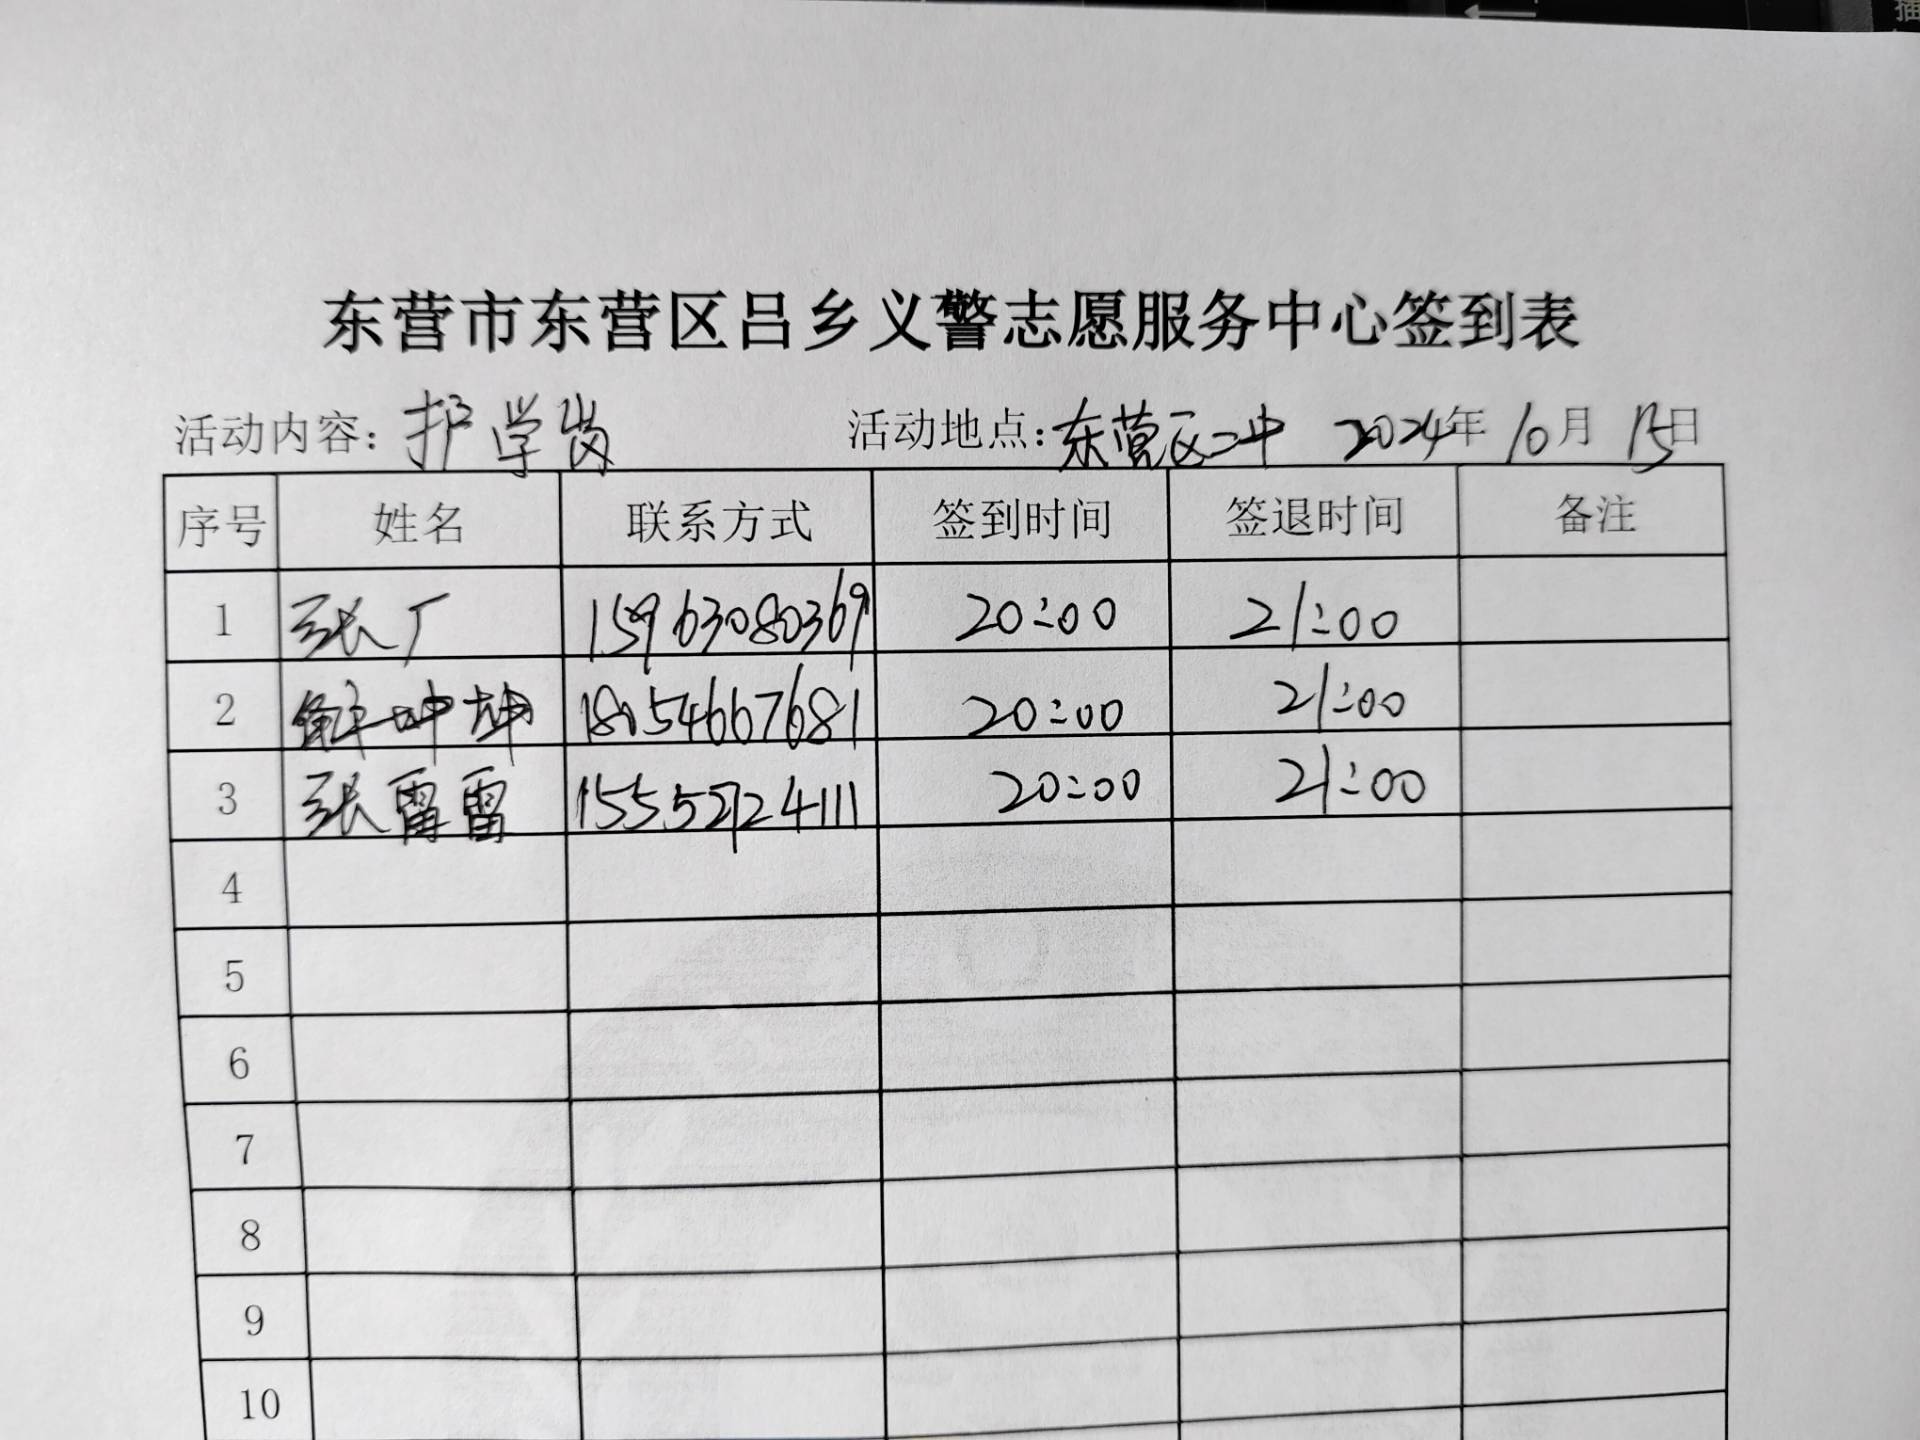 东营市东营区吕乡义警志愿服务中心签到表
活动内容：护学岗 活动地点：东营区二中 2024年10月15日
序号 姓名 联系方式 签到时间 签退时间 备注
1 张广 15963080369 20:00 21:00
2 坤坤 18054667681 20:00 21:00
3 张雷雷 15552724111 20:00 21:00
4
5
6
7
8
9
10